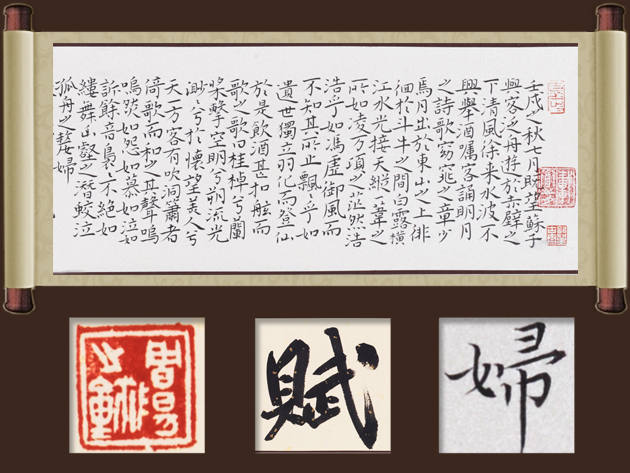 壬戌之秋七月既望蘇子
與客泛舟遊於赤壁之
下清風徐来水波不
興舉酒嘱客誦明月
之詩歌窈窕之章少
焉月出於東山之上徘
徊於斗牛之間白露横
江水光接天縱一葦之
所如凌万頃之茫然浩
浩乎如馮虛御風而
不知其所止飄々乎如
遺世獨立羽化而登仙
於是飲酒甚扣舷而
歌之歌曰桂棹兮蘭
槳擊空明兮泝流光
渺々兮於懷望美人兮
天一方客有吹洞簫者
倚歌而和之其聲嗚
嗚然如怨如慕如泣如
訴餘音裊々不絕如
縷舞幽壑之潛蛟泣
孤舟之嫠婦
賦
婦